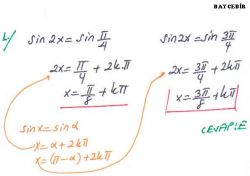 BAY CEBİR
4) sin2x = sin π/4
2x = π/4 + 2kπ
x = π/8 + kπ
sin2x = sin 3π/4
2x = 3π/4 + 2kπ
x = 3π/8 + kπ
CEVAPLE
sinx = sinα
x = α + 2kπ
x = (π-α) + 2kπ